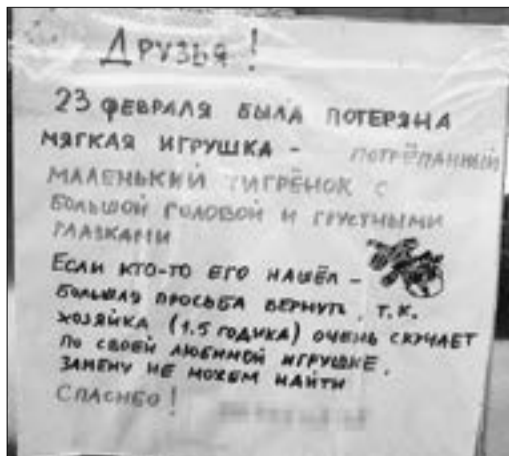 Друзья!
23 февраля была потеряна
мягкая игрушка - потрёпанный
маленький тигрёнок с
большой головой и грустными
глазками
Если кто-то его нашёл -
большая просьба вернуть, т.к.
хозяйка (1.5 годика) очень скучает
по своей любимой игрушке.
Замену не можем найти
Спасибо!